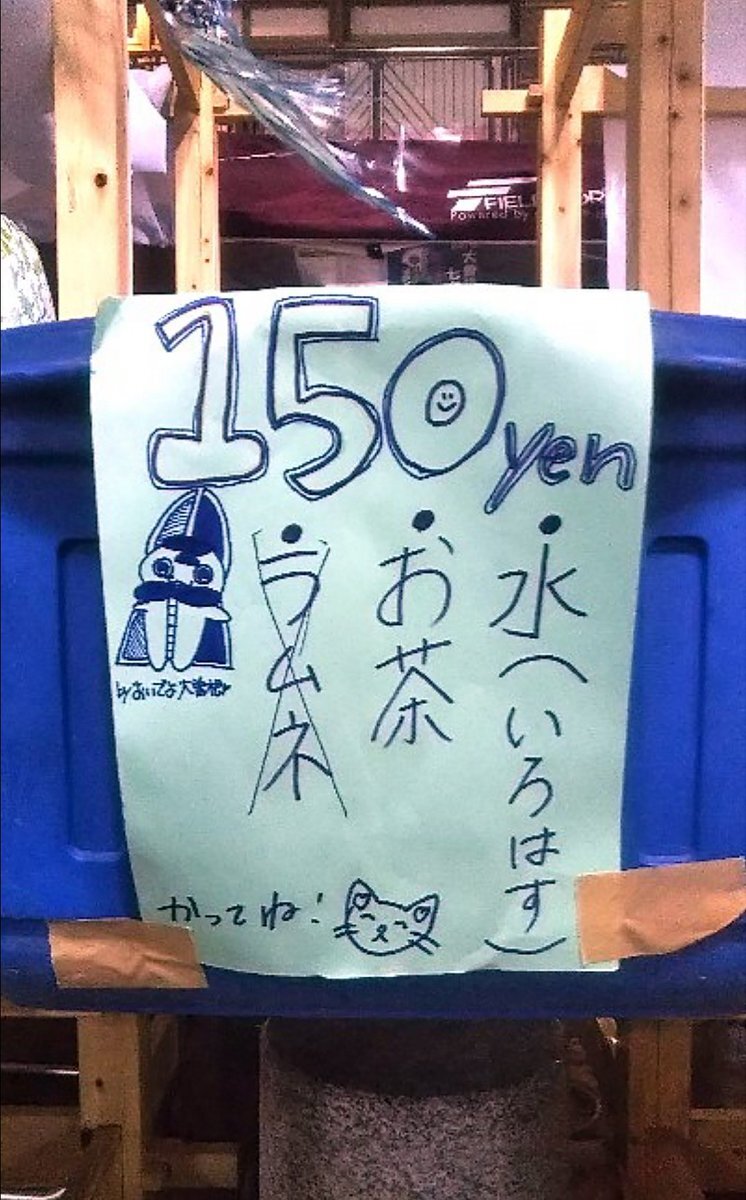 FIEL
Powered by
150yen
・水(いろはす)
・お茶
・ラムネ
byおいでよ大曽根
かってね!